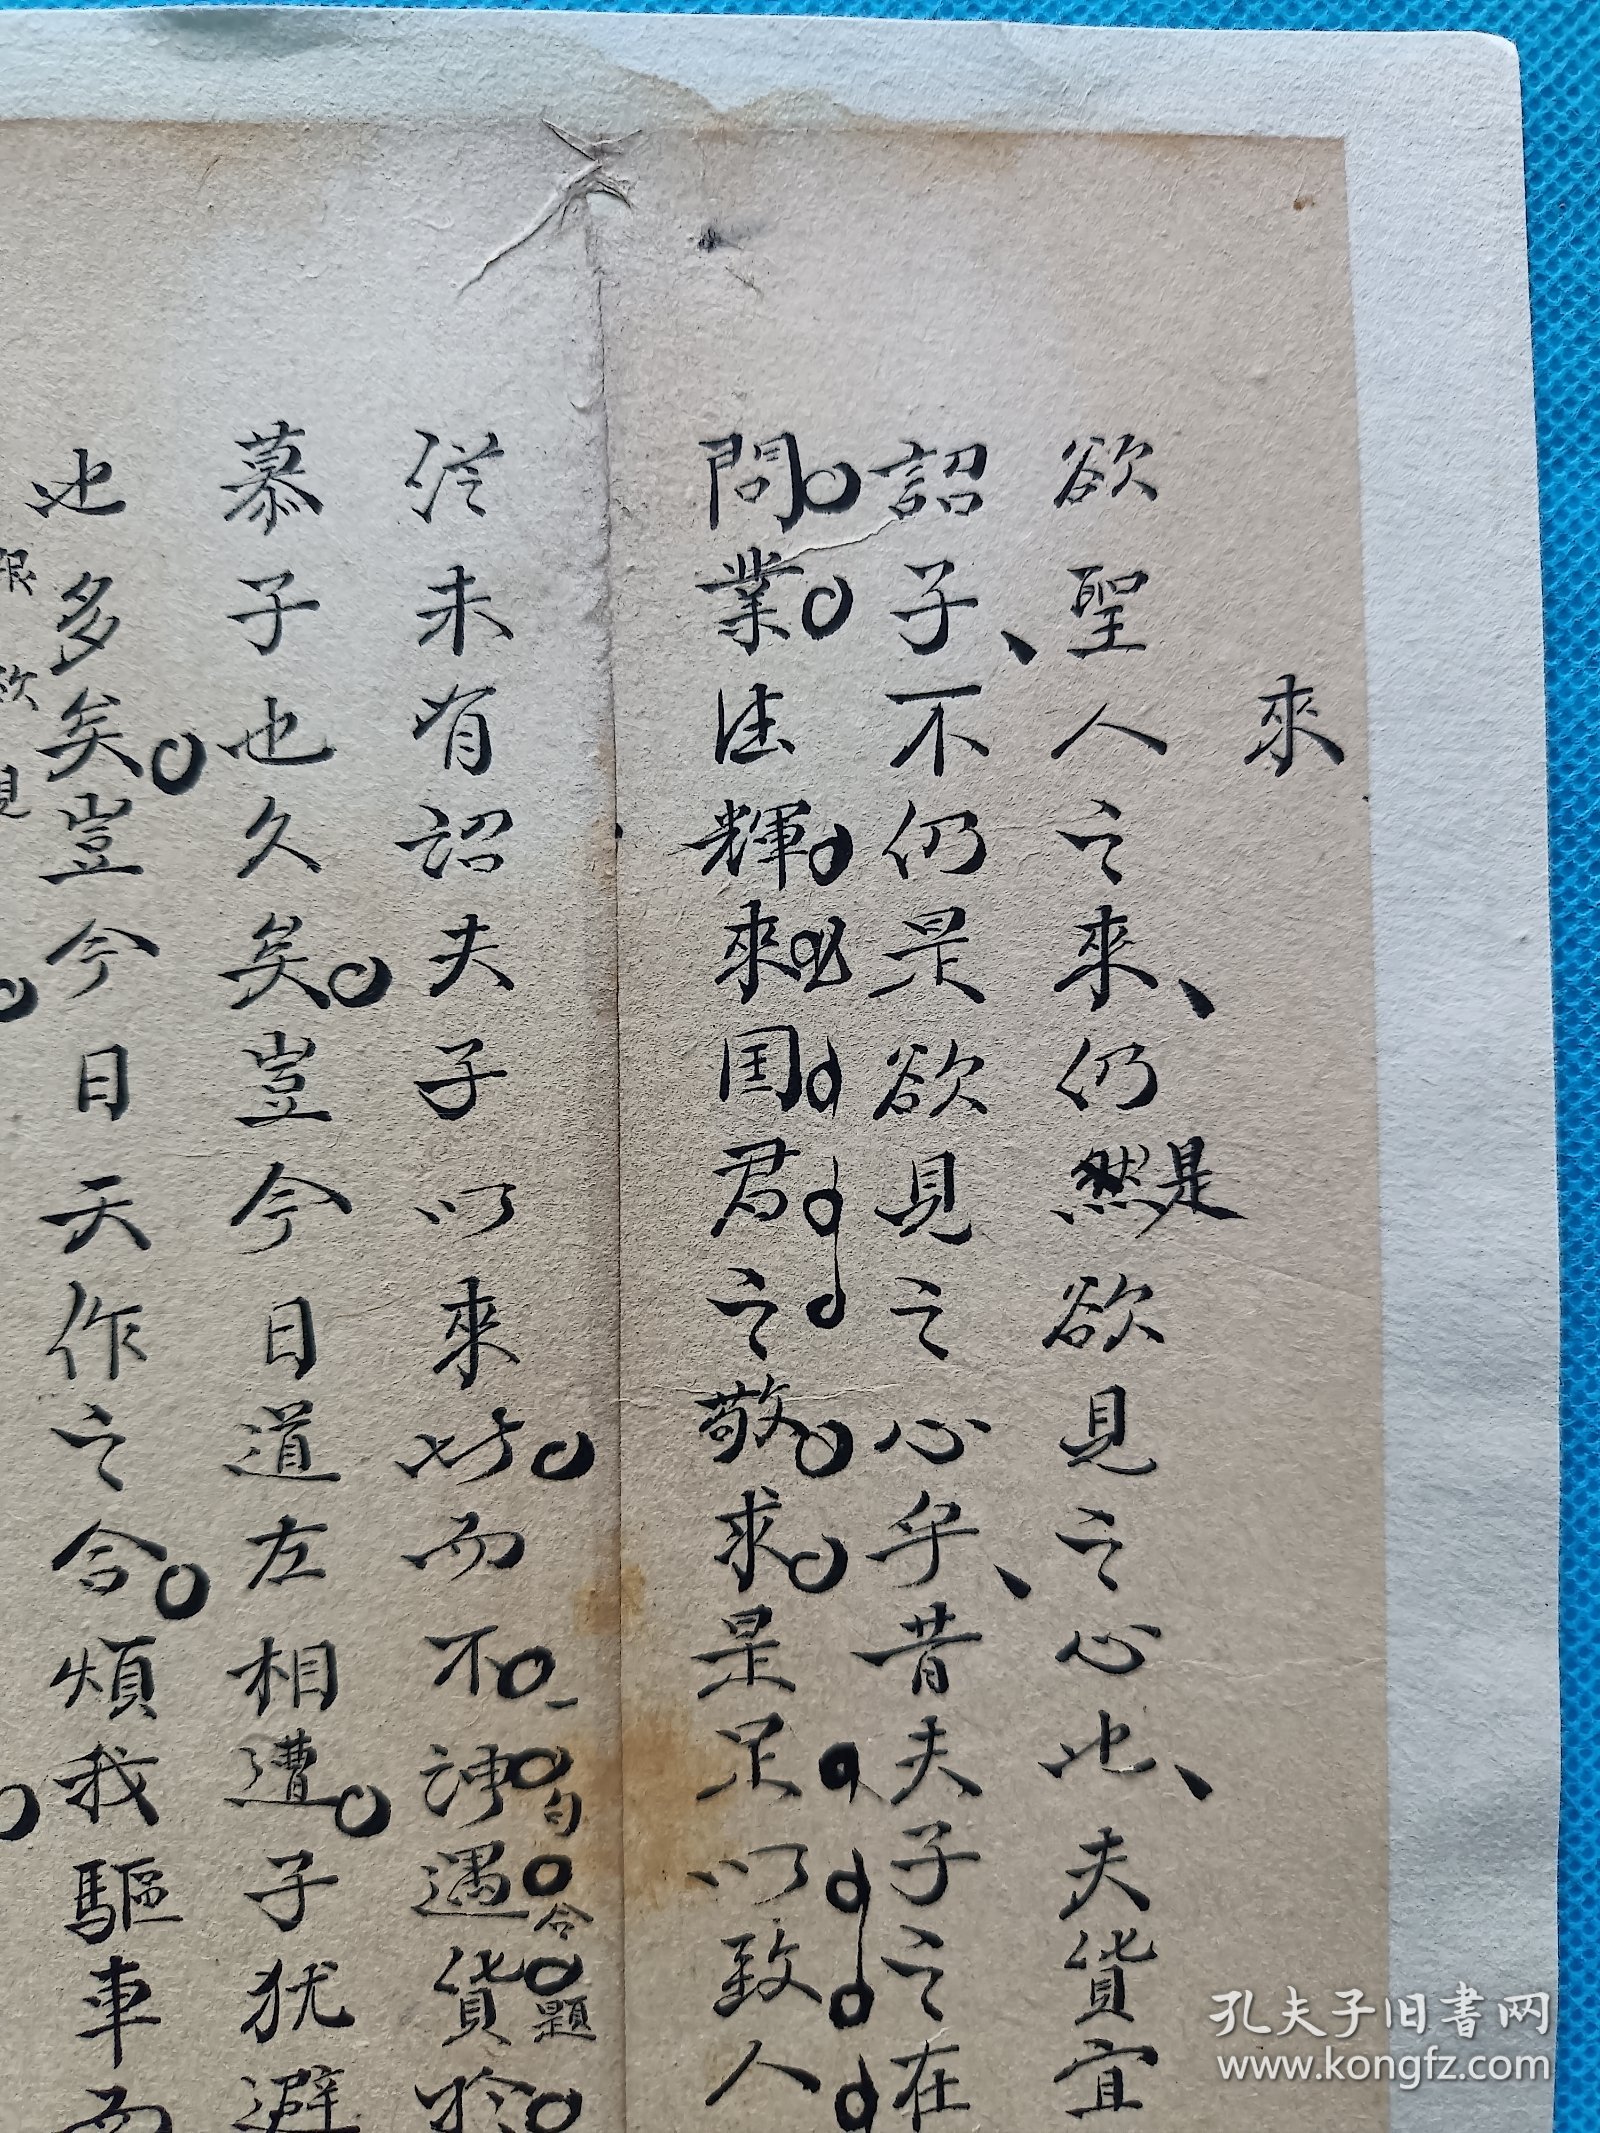 來
欲聖人之來仍然是欲見之心也夫貨宜
詔子不仍是欲見之心乎昔夫子之在
問業法輝來国君之敬求是足以致人
從未有詔夫子以來此而不諱遇貨於
一句合題
慕子也久矣豈今日道左相遭子犹避
也多矣豈今日天作之合煩我驅車而
見
孔夫子旧書网
www.kongfz.com